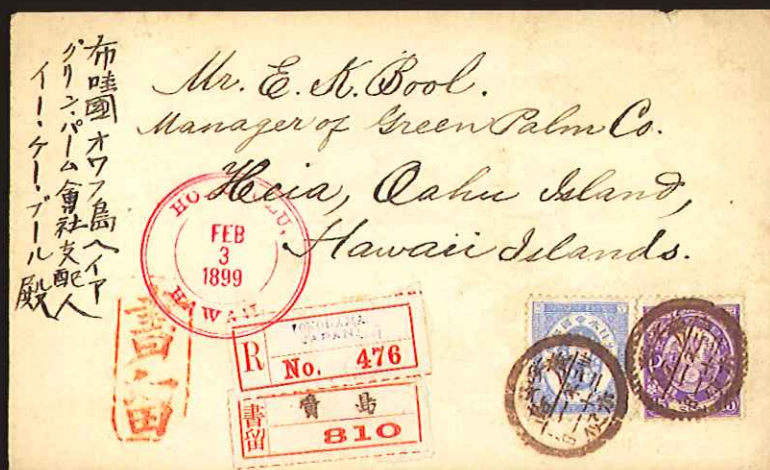 布哇國オワフ島ヘイア
グリン・パーム會社支配人
イー・ケー・ブール殿
Mr. E. K. Bool.
Manager of Green Palm Co.
Heia, Oahu Island,
Hawaii Islands.
HONOLULU,
FEB
3
1899
HAWAII
書留
YOKOHAMA
JAPAN
R
No. 476
書留
810